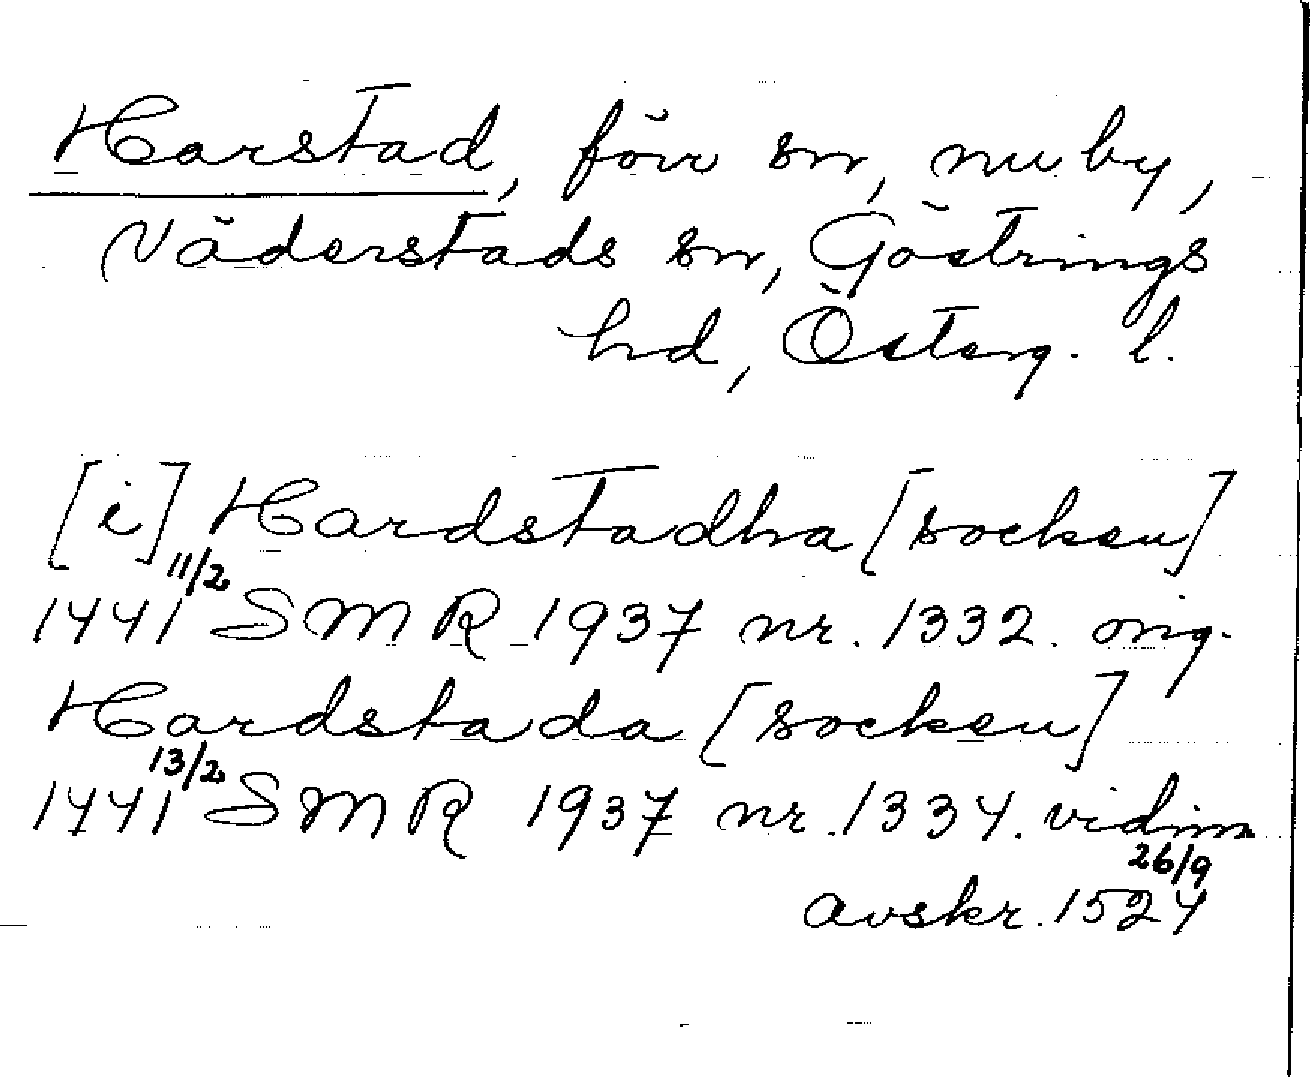 Harstad, förr sn, nu by,
Väderstads sn, Göstrings
hd, Österg. l.
[i] Hardstadha [socken]
1441 11/2 SMR 1937 nr. 1332. orig.
Hardstada [socken]
1441 13/2 SMR 1937 nr. 1334. vidim
avskr. 1524 26/9